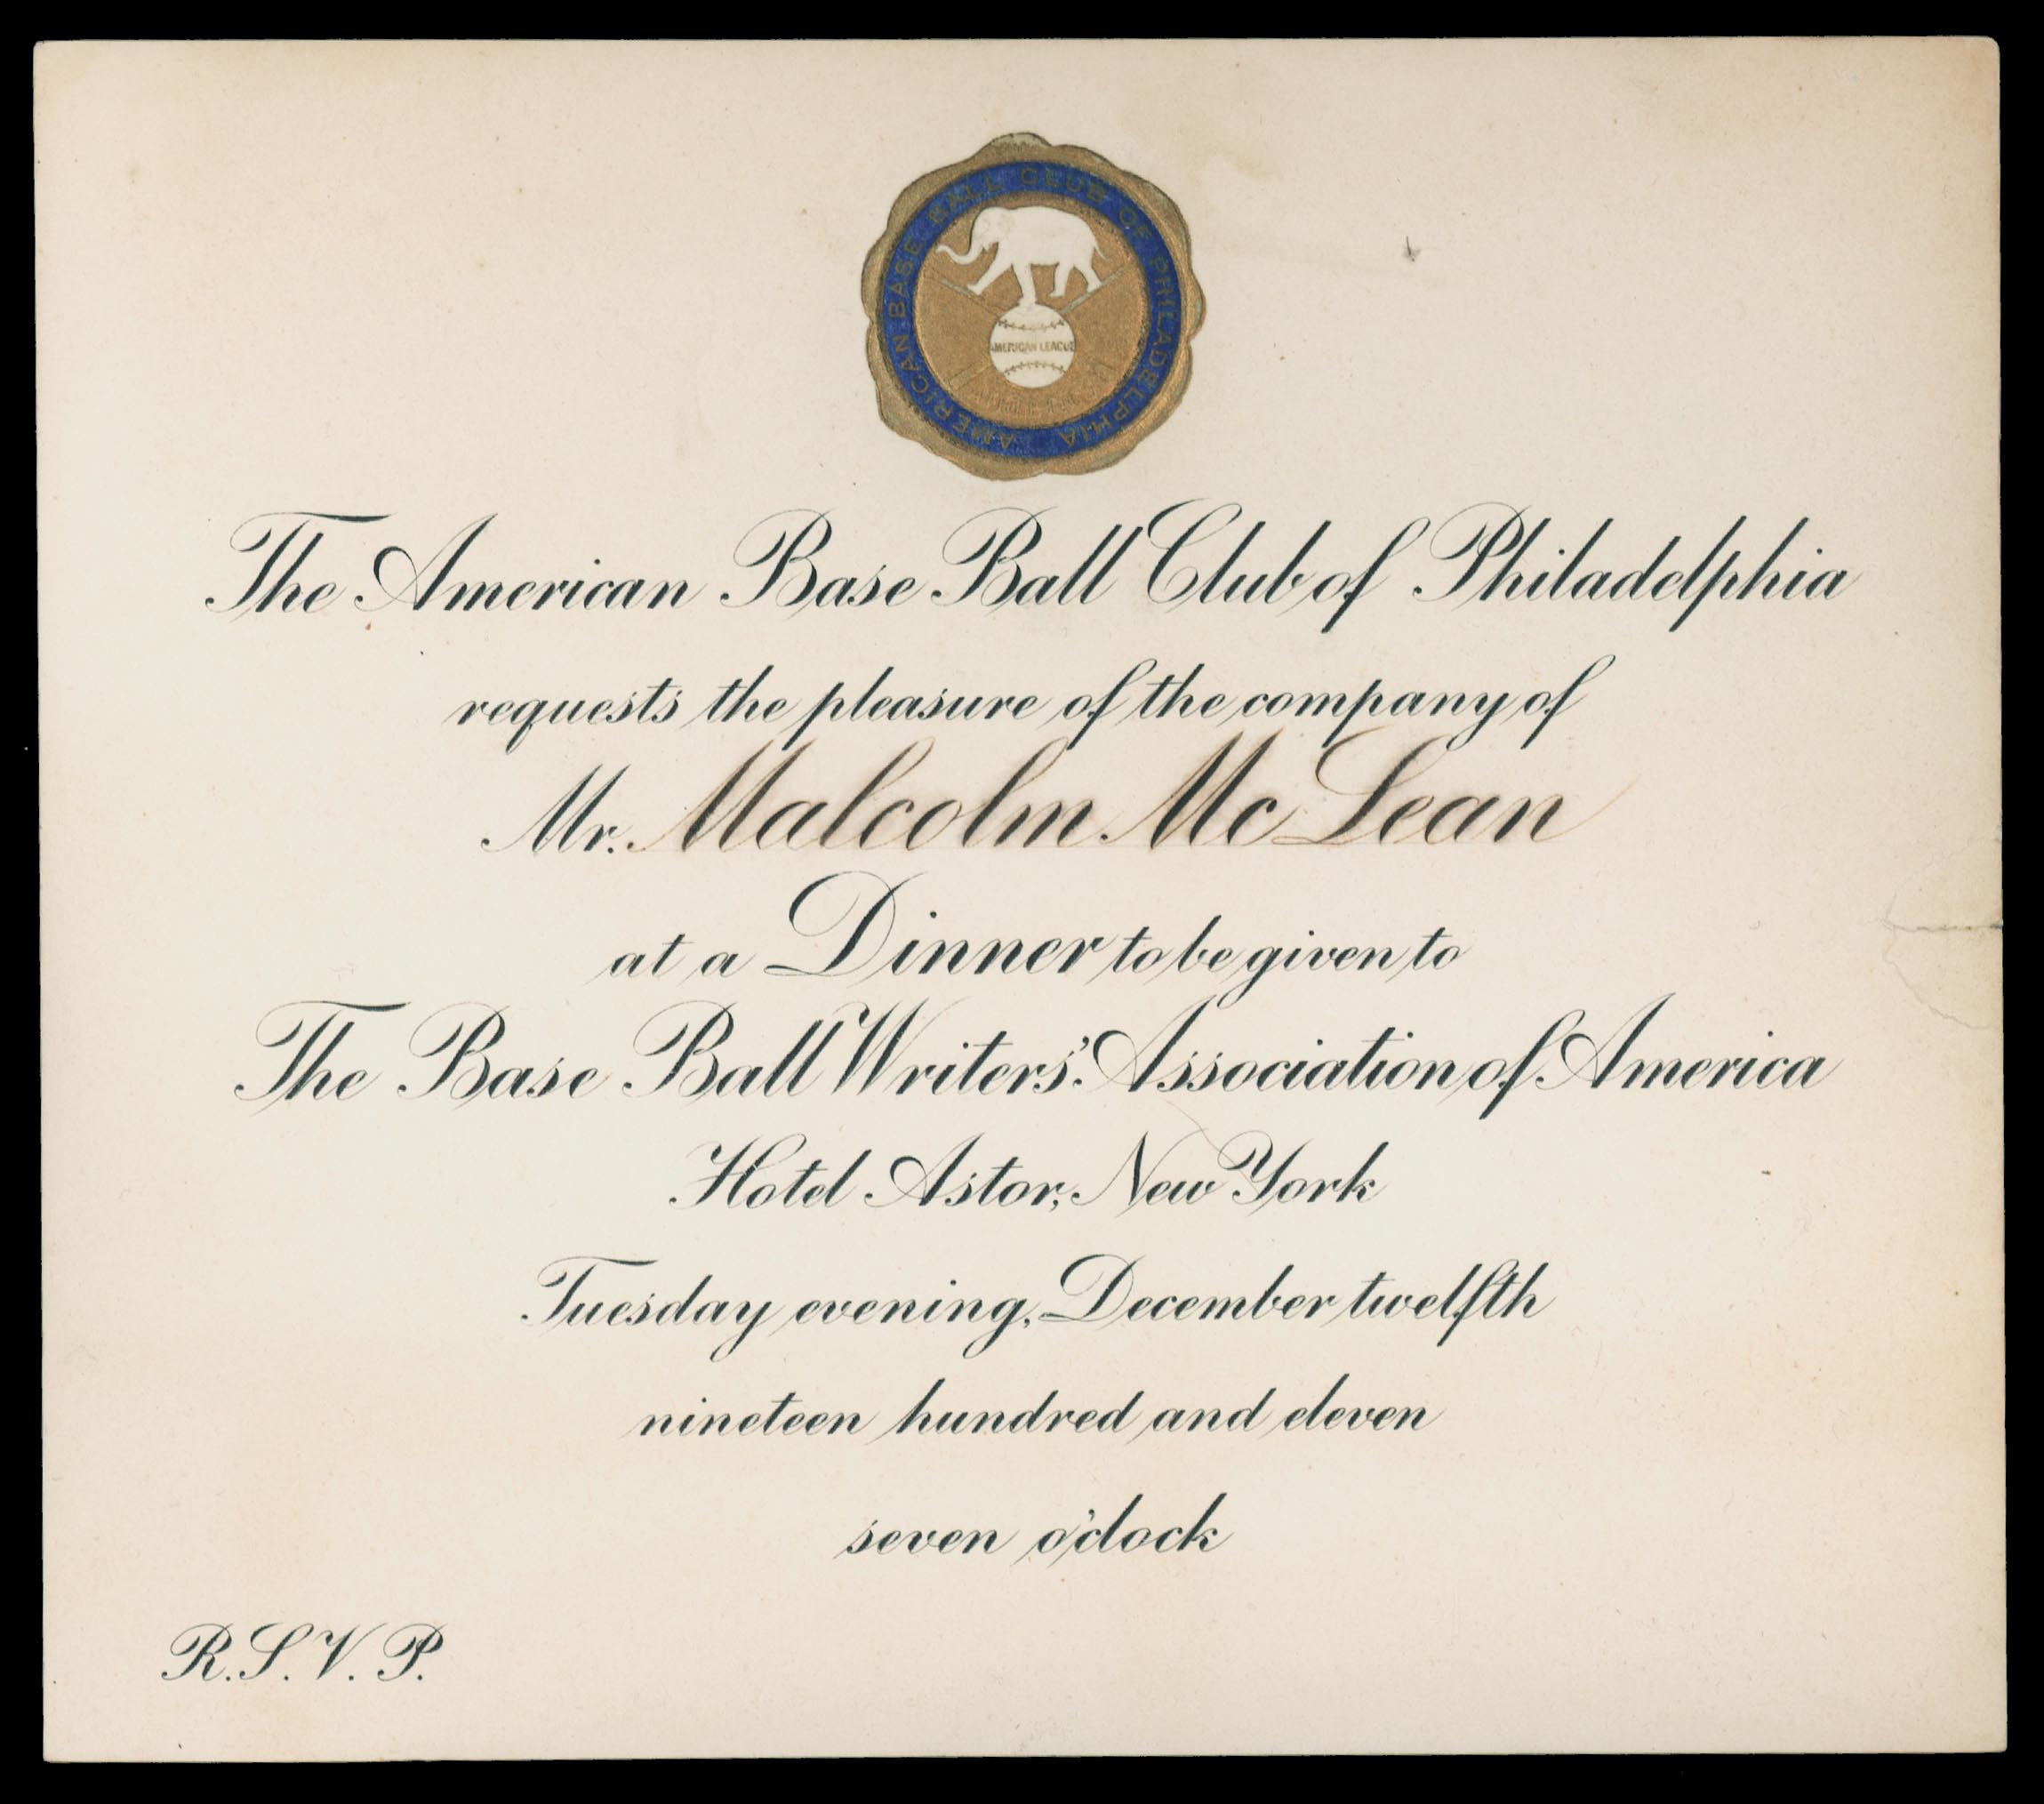 AMERICAN BASE BALL CLUB OF PHILADELPHIA
AMERICAN LEAGUE
The American Base Ball Club of Philadelphia
requests the pleasure of the company of
Mr. Malcolm McLean
at a Dinner to be given to
The Base Ball Writers' Association of America
Hotel Astor, New York
Tuesday evening, December twelfth
nineteen hundred and eleven
seven o'clock
R.S.V.P.